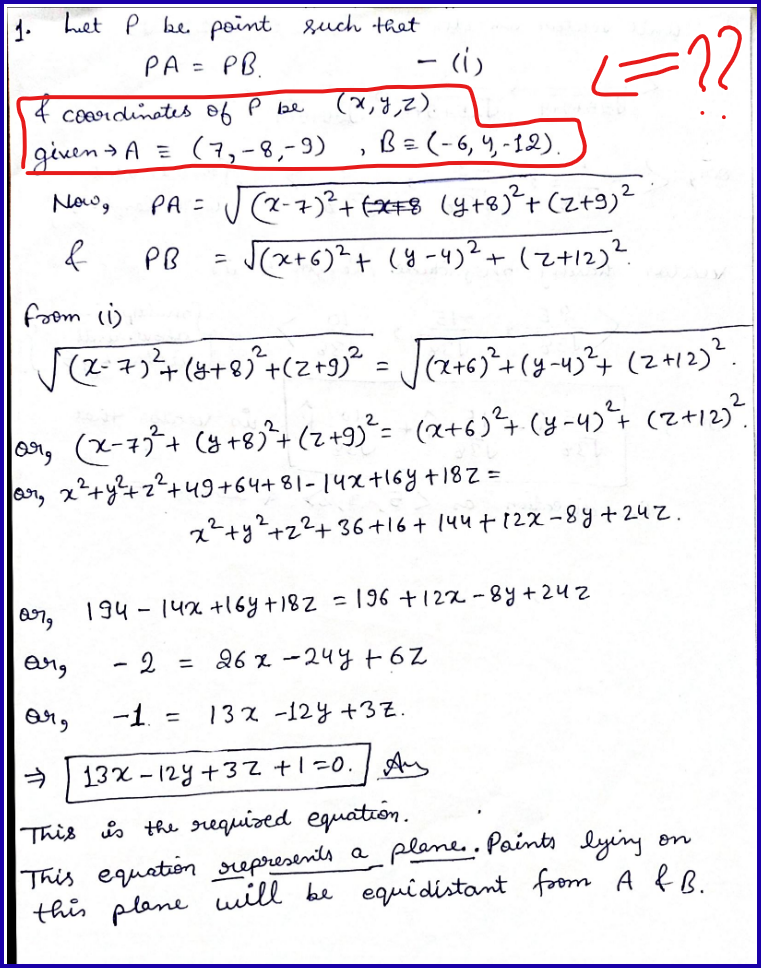 1. Let P be point such that
PA = PB. - (i)
<= ??
& coordinates of P be (x,y,z).
given → A ≡ (7,-8,-9) , B ≡ (-6,4,-12).
Now, PA = √(x-7)²+ (y+8)²+(z+9)²
& PB = √(x+6)²+ (y-4)²+ (z+12)².
from (i)
√(x-7)²+(y+8)²+(z+9)² = √(x+6)²+(y-4)²+ (z+12)².
or, (x-7)²+ (y+8)²+(z+9)²= (x+6)²+(y-4)²+ (z+12)².
or, x²+y²+z²+49+64+81-14x+16y+18z =
x²+y²+z²+36+16+144+12x-8y+24z.
or, 194-14x+16y+18z = 196+12x-8y+24z
or, -2 = 26x-24y+6z
or, -1. = 13x-12y+3z.
⇒ 13x-12y+3z+1=0. Ans
This is the required equation.
This equation represents a plane. Points lying on
this plane will be equidistant from A & B.